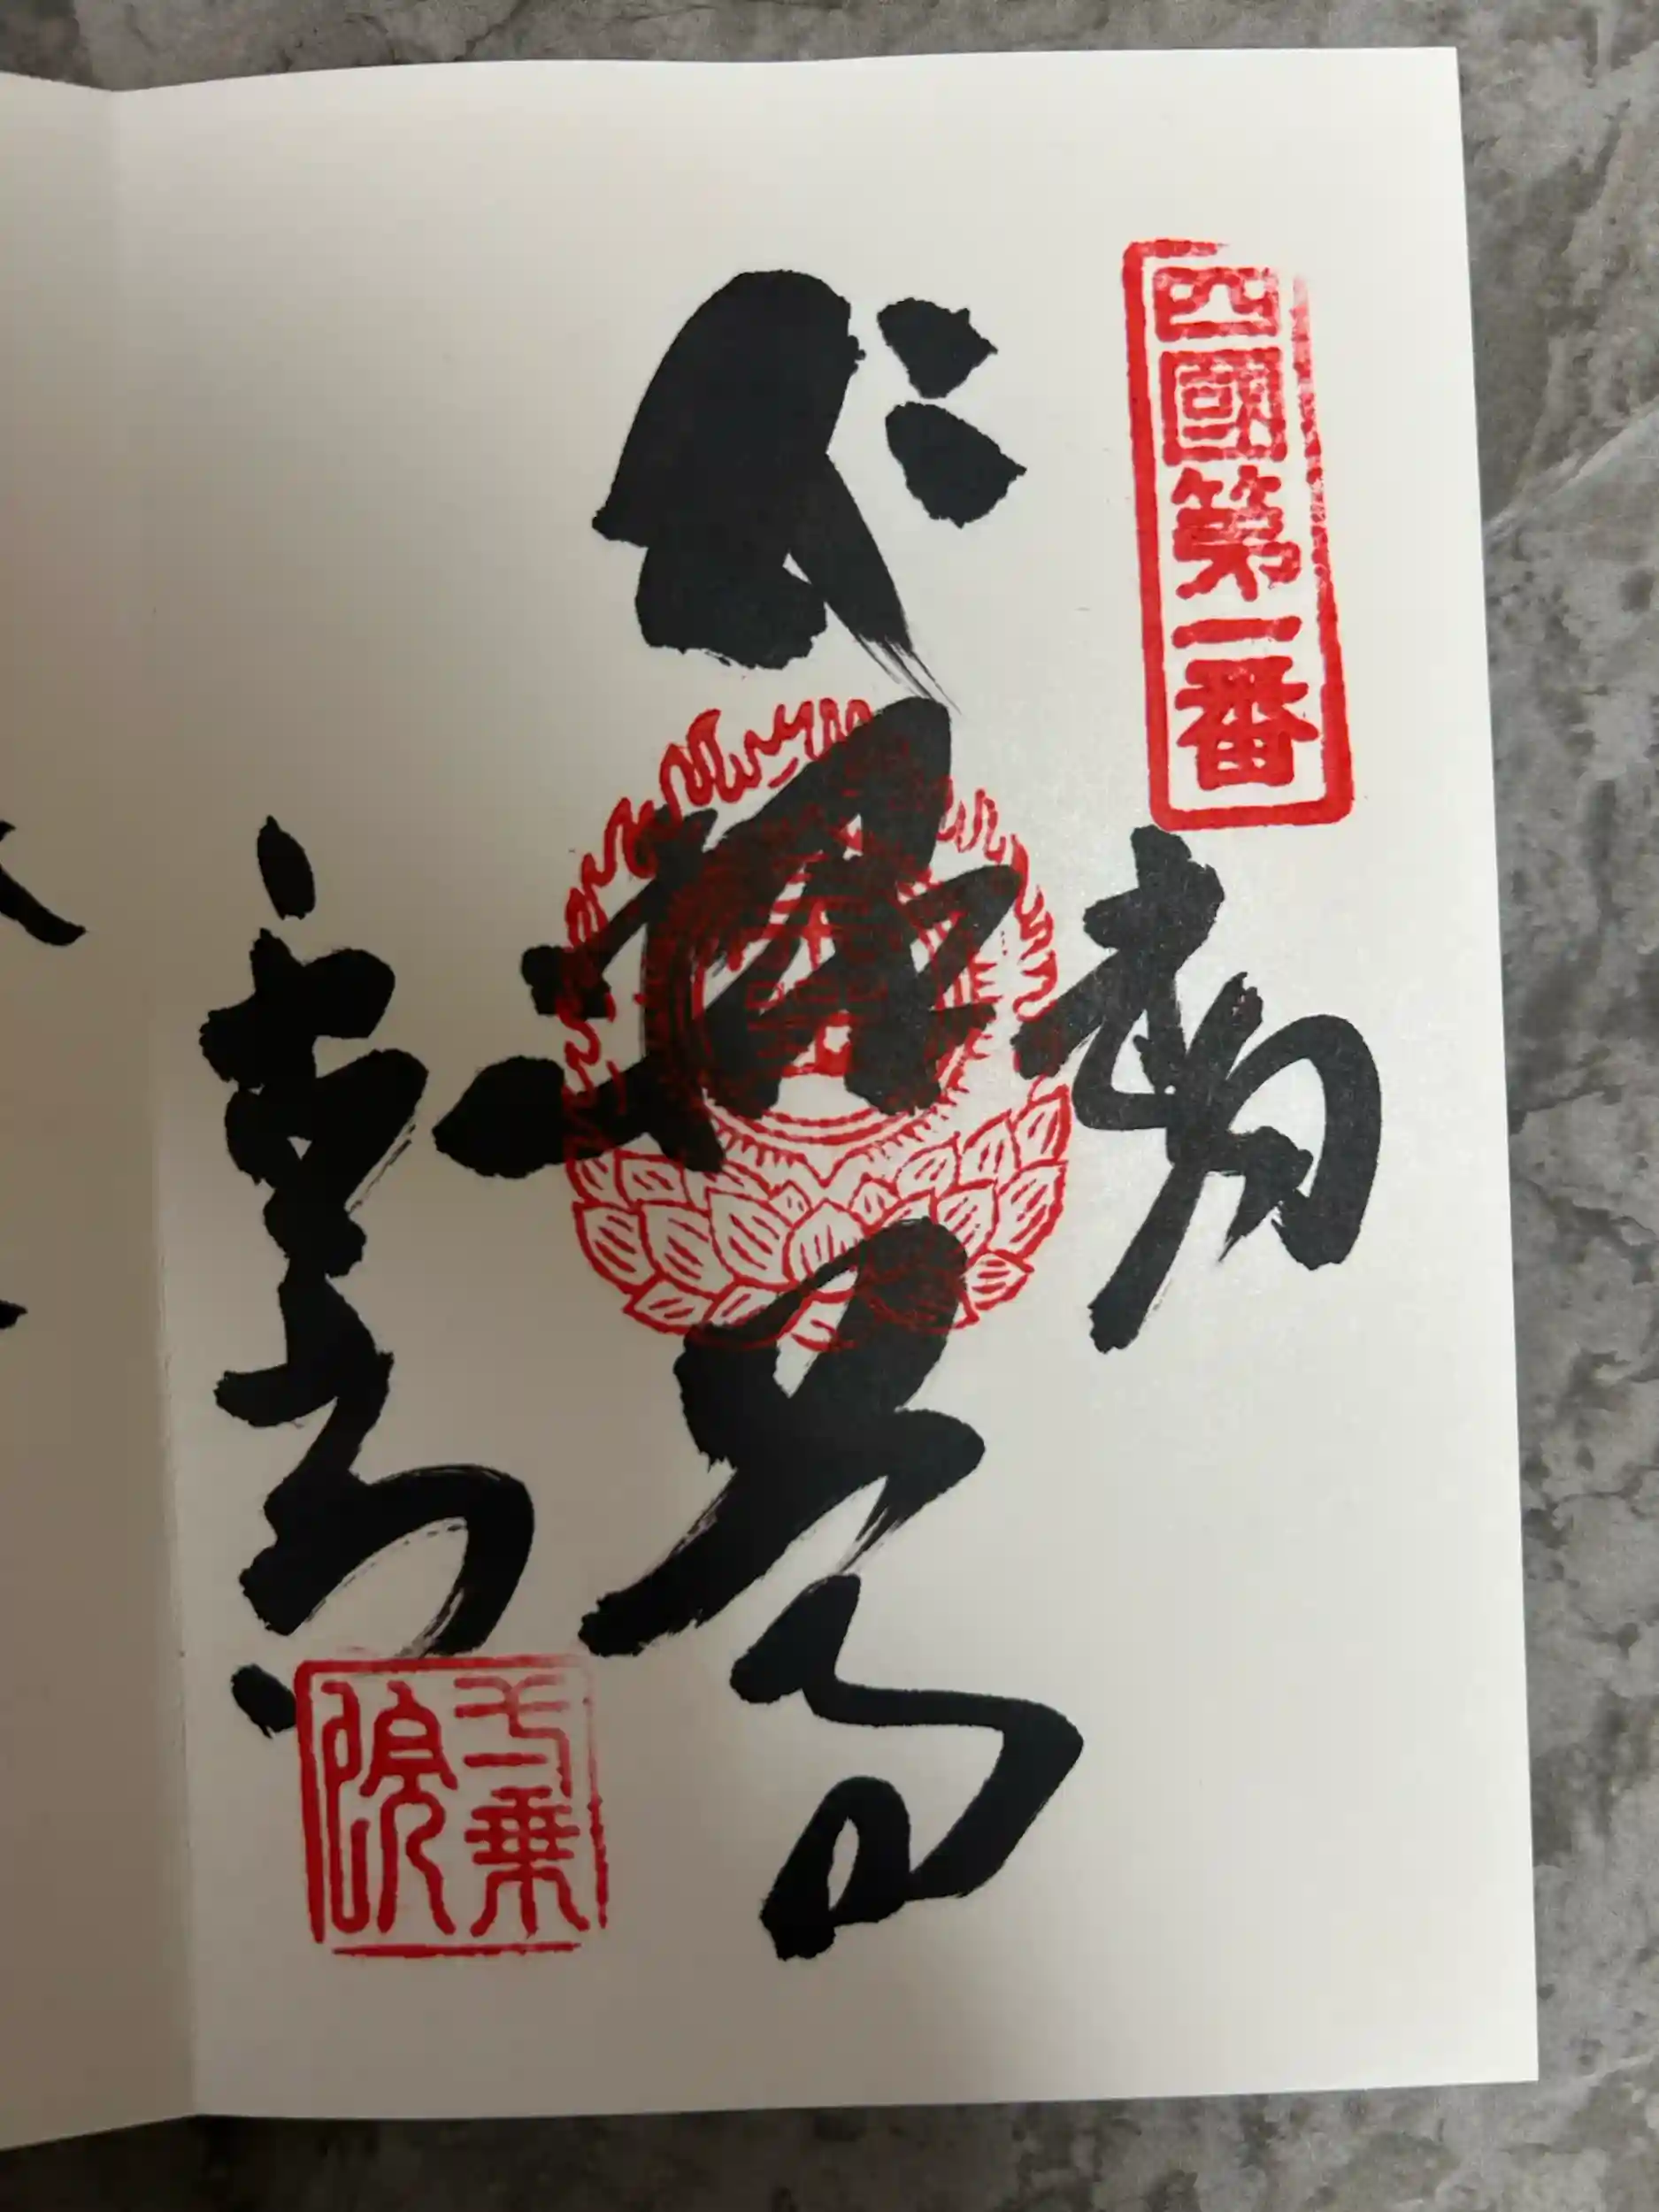 四國第一番
奉納
釈迦如来
霊山寺
弌乗院